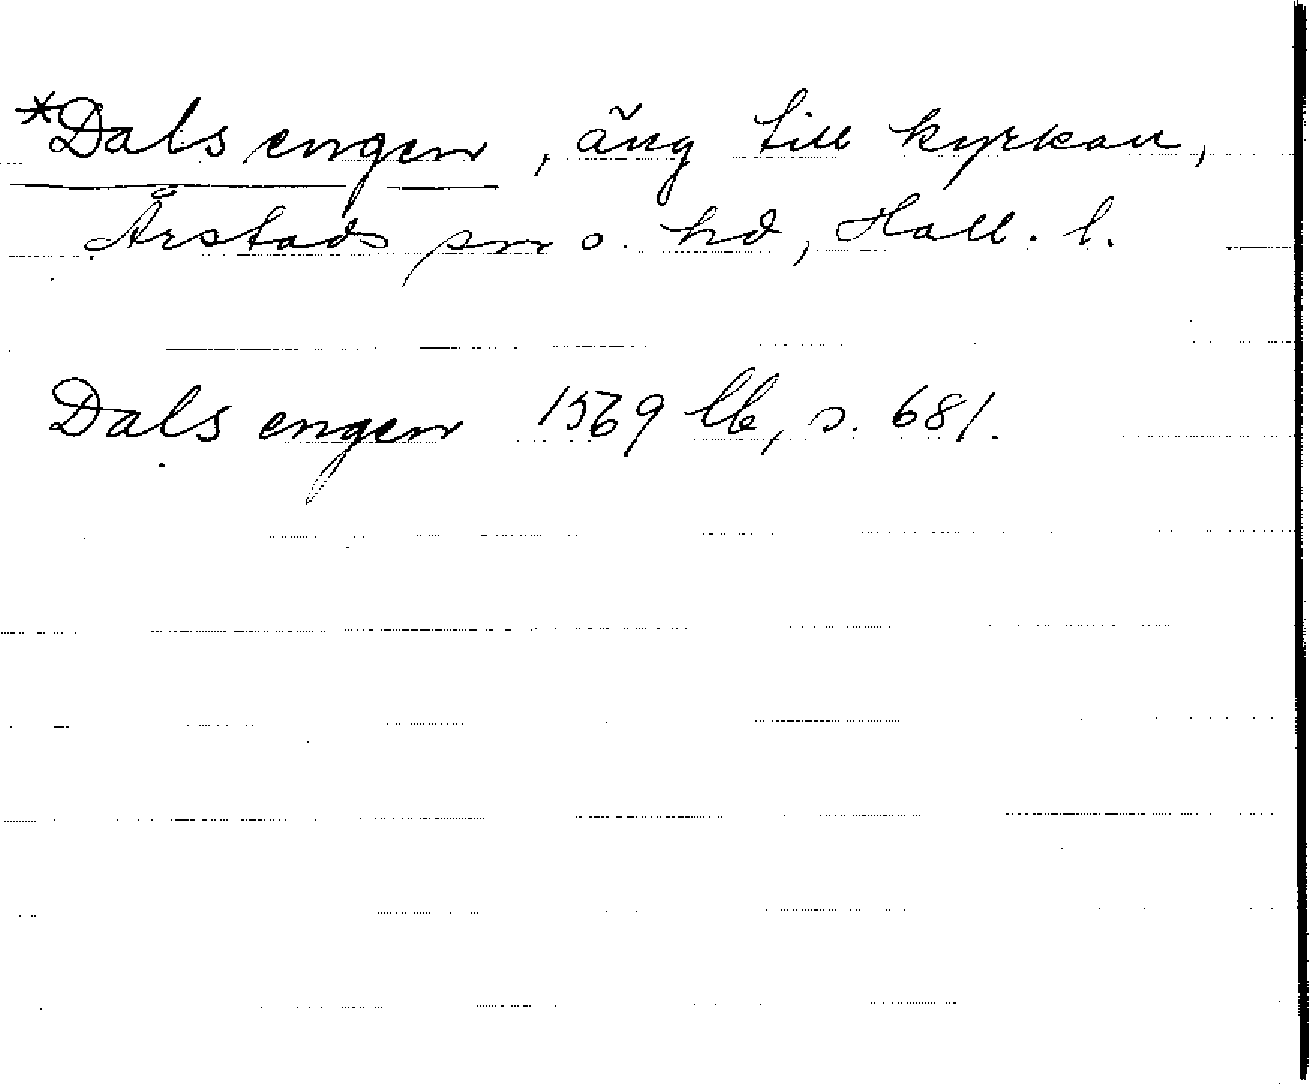 *Dals engen, äng till kyrkan,
Årstads sn o. hd, Hall. l.
Dals engen 1569 lb, s. 681.